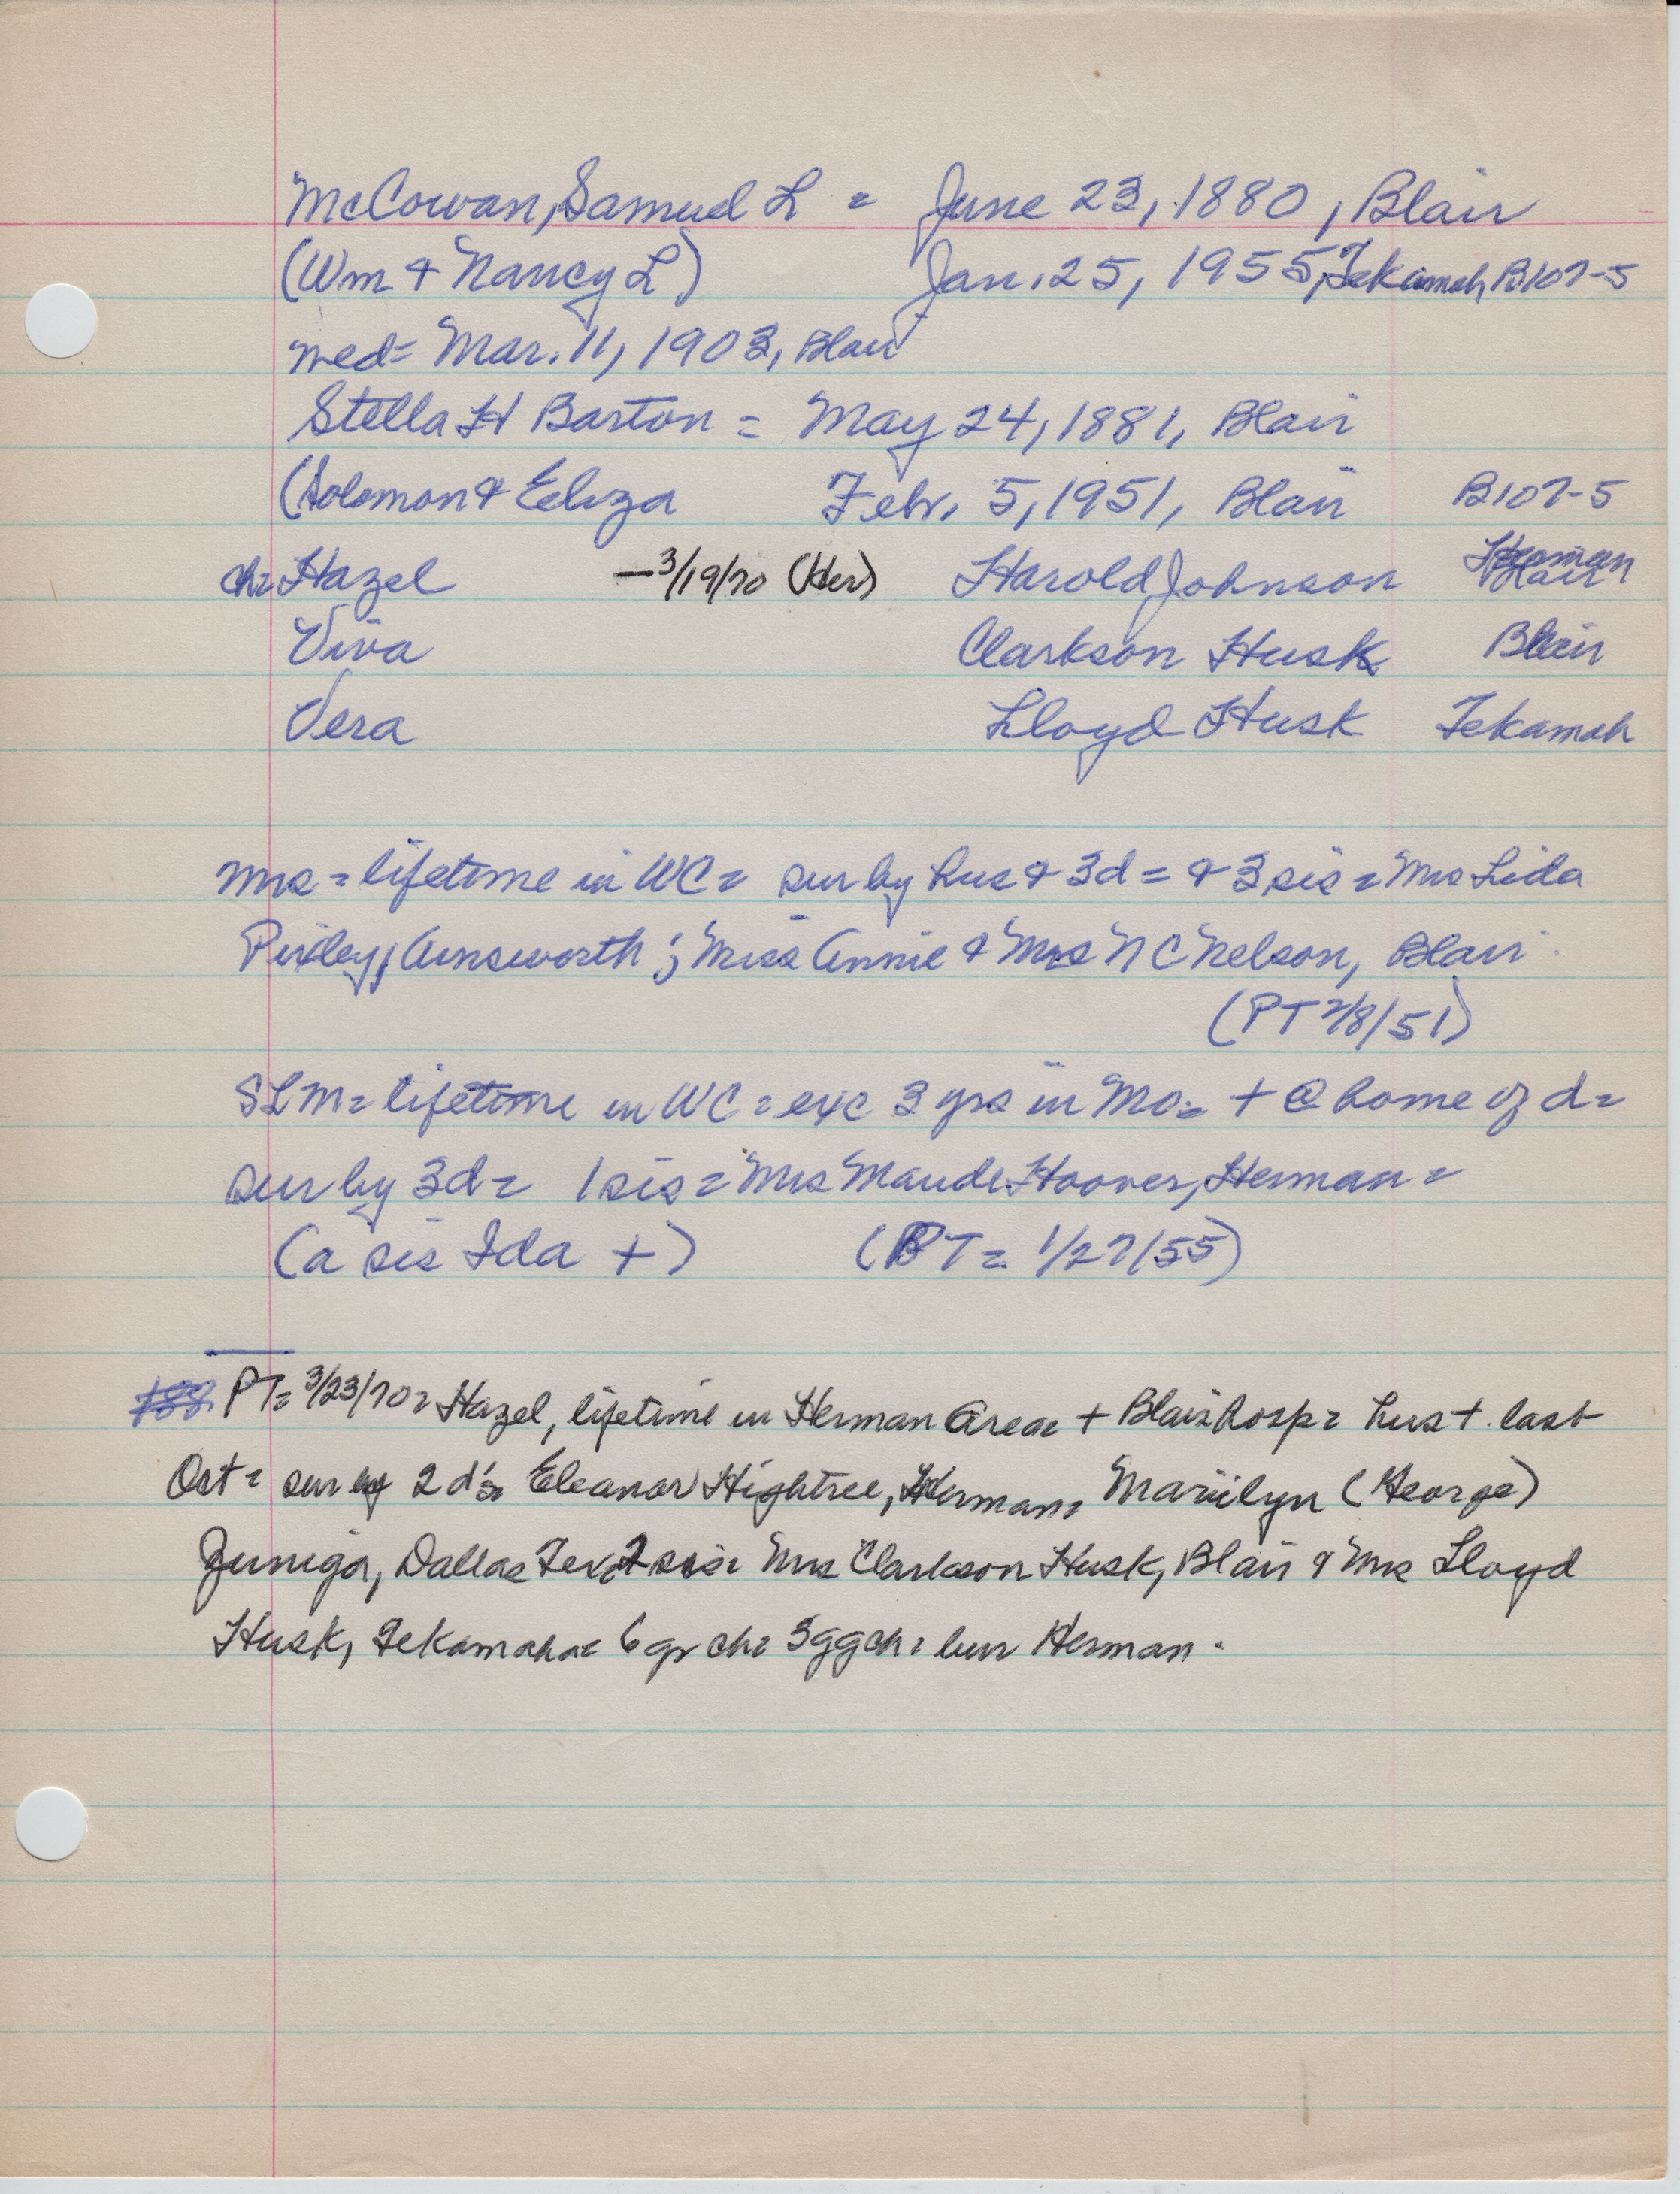 McCowan, Samuel L = June 23, 1880, Blair
(Wm & Nancy L) Jan. 25, 1955, Tekamah, B107-5
med= Mar. 11, 1903, Blair
Stella H Barton = May 24, 1881, Blair
(Solomon & Eeliza Febr. 5, 1951, Blair B107-5
ch= Hazel —3/19/70 (Her) Harold Johnson Herman
Viva Clarkson Husk Blair
Vera Lloyd Husk Tekamah
mrs = lifetime in WC = sur by hus & 3d = & 3 sis = Mrs Lida
Pixley, Ainsworth; Miss Annie & Mrs N C Nelson, Blair.
(PT 2/8/51)
SLM = lifetime in WC = exc 3 yrs in Mo. = + @ home of d =
sur by 3d = 1 sis = Mrs Maude Hoover, Herman =
(a sis Ida +) (PT = 1/27/55)
PT= 3/23/70 = Hazel, lifetime in Herman area = + Blair hosp = hus +. last
Oct = sur by 2 d's = Eleanor Hightree, Herman, Marilyn (George)
Zuniga, Dallas Tex 2 sis = Mrs Clarkson Husk, Blair & Mrs Lloyd
Husk, Tekamah = 6 gr ch = 5 ggch = bur Herman.